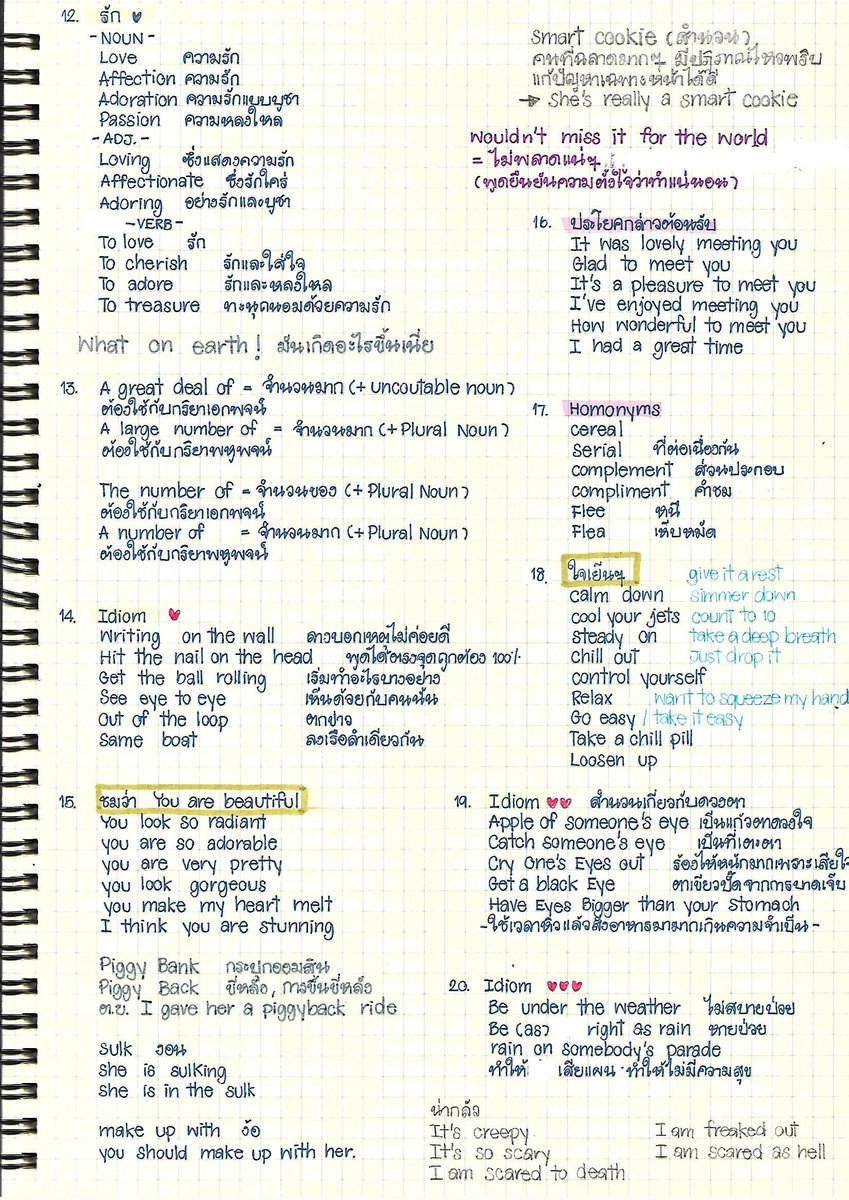 12. รัก
- NOUN -
Love ความรัก
Affection ความรัก
Adoration ความรักแบบบูชา
Passion ความหลงใหล
- ADJ. -
Loving ซึ่งแสดงความรัก
Affectionate ซึ่งรักใคร่
Adoring อย่างรักและบูชา
- VERB -
To love รัก
To cherish รักและใส่ใจ
To adore รักและหลงใหล
To treasure ทะนุถนอมด้วยความรัก
What on earth! มันเกิดอะไรขึ้นเนี่ย
13. A great deal of = จำนวนมาก (+ uncoutable noun)
ต้องใช้กับกริยาเอกพจน์
A large number of = จำนวนมาก (+ Plural Noun)
ต้องใช้กับกริยาพหูพจน์
The number of = จำนวนของ (+ Plural Noun)
ต้องใช้กับกริยาเอกพจน์
A number of = จำนวนมาก (+ Plural Noun)
ต้องใช้กับกริยาพหูพจน์
14. Idiom
Writing on the wall ลางบอกเหตุไม่ค่อยดี
Hit the nail on the head พูดได้ตรงจุดถูกต้อง 100%
Get the ball rolling เริ่มทำอะไรบางอย่าง
See eye to eye เห็นด้วยกับคนนั้น
Out of the loop ตกข่าว
Same boat ลงเรือลำเดียวกัน
15. ชมว่า You are beautiful
You look so radiant
you are so adorable
you are very pretty
you look gorgeous
you make my heart melt
I think you are stunning
Piggy Bank กระปุกออมสิน
Piggy Back ขี่หลัง, การขึ้นขี่หลัง
ต.ย. I gave her a piggyback ride
Sulk งอน
She is sulking
She is in the sulk
make up with ง้อ
you should make up with her.
Smart cookie (สำนวน)
คนที่ฉลาดมากๆ มีปฏิภาณไหวพริบ
แก้ปัญหาเฉพาะหน้าได้ดี
→ She's really a smart cookie
wouldn't miss it for the world
= ไม่พลาดแน่ๆ
(พูดยืนยันความตั้งใจว่าทำแน่นอน)
16. ประโยคกล่าวต้อนรับ
It was lovely meeting you
Glad to meet you
It's a pleasure to meet you
I've enjoyed meeting you
How wonderful to meet you
I had a great time
17. Homonyms
cereal
Serial ที่ต่อเนื่องกัน
complement ส่วนประกอบ
compliment คำชม
Flee หนี
Flea เห็บหมัด
18. ใจเย็นๆ give it a rest
calm down simmer down
cool your jets count to 10
steady on take a deep breath
chill out Just drop it
control yourself
Relax want to squeeze my hand
Go easy / take it easy
Take a chill pill
Loosen up
19. Idiom สำนวนเกี่ยวกับดวงตา
Apple of someone's eye เป็นแก้วตาดวงใจ
Catch someone's eye เป็นที่เตะตา
Cry One's Eyes out ร้องไห้หนักมากเพราะเสียใจ
Get a black Eye ตาเขียวปั๊ดจากการบาดเจ็บ
Have Eyes Bigger than your stomach
- ใช้เวลาหิวแล้วสั่งอาหารมามากเกินความจำเป็น -
20. Idiom
Be under the weather ไม่สบายป่วย
Be (as) right as rain หายป่วย
rain on somebody's parade
ทำให้ เสียแผน ทำให้ไม่มีความสุข
น่ากลัว
It's creepy I am freaked out
It's so scary I am scared as hell
I am scared to death